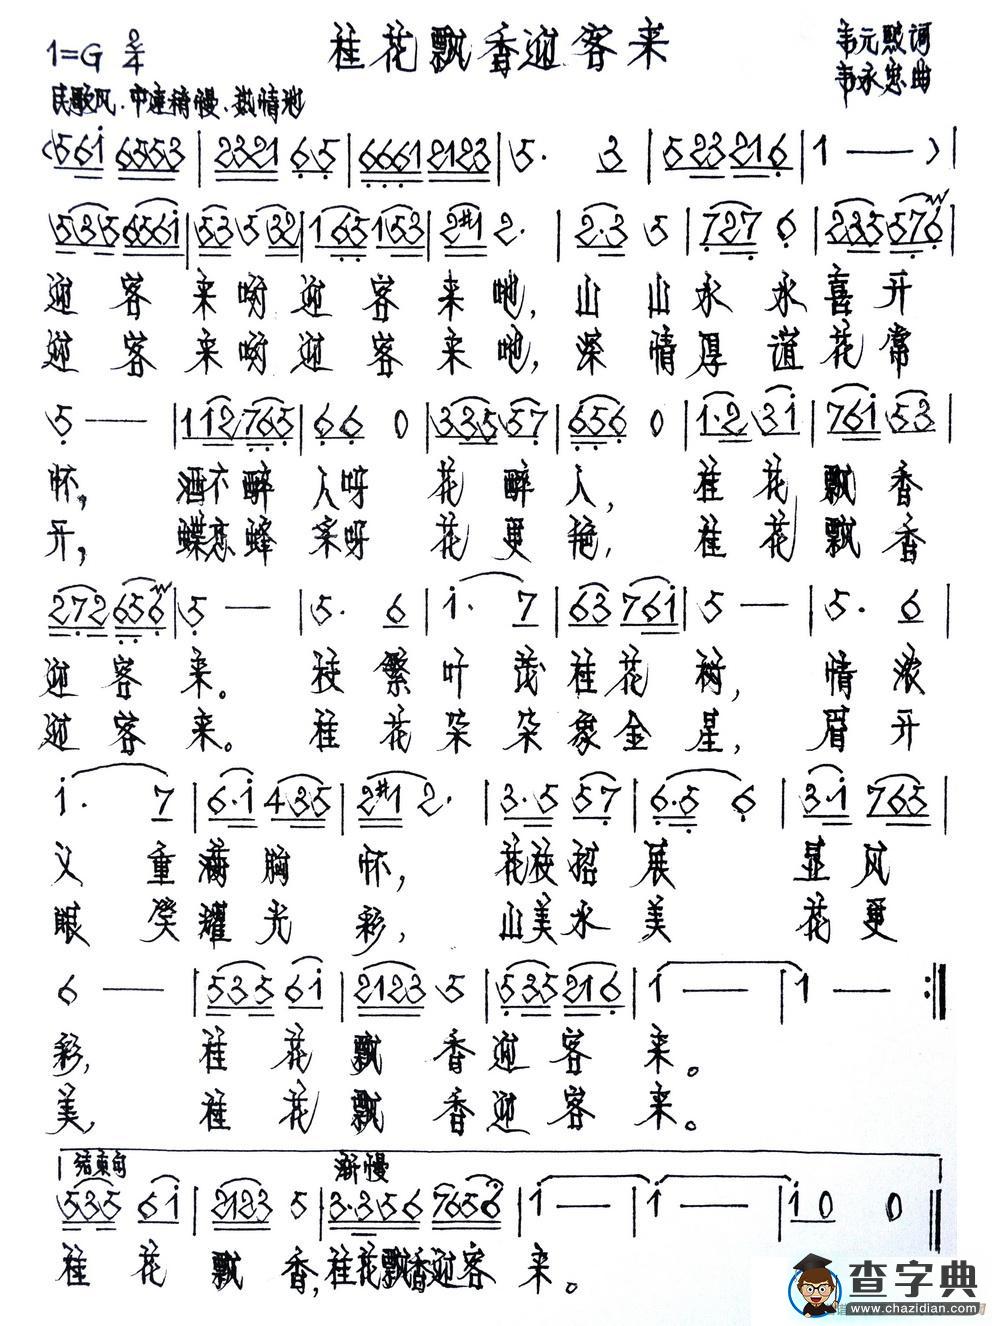 桂花飘香迎客来
1=G 2/4
韦元 词
韦永忠曲
民歌风.中速稍慢、热情地
(561 6553 | 2321 65 | 6661 2123 | 5. 3 | 523216 | 1 —— ) |
535 6561 | 53 532 | 165 153 | 2#1 2. | 2.3 5 | 727 6 | 235576 |
迎客来哟迎客来吔,山山水水喜开
迎客来哟迎客来吔,深情厚谊花常
5 —— | 112 765 | 66 0 | 335 57 | 656 0 | 1.2 31 | 761 53 |
怀,酒不醉人呀花醉人,桂花飘香
开,蝶恋蜂采呀花更艳,桂花飘香
272 656 | 5 — | 5. 6 | 1. 7 | 63 761 | 5 —— | 5. 6 |
迎客来。枝繁叶茂桂花树,情浓
迎客来。桂花朵朵象金星,眉开
1. 7 | 6.1 435 | 2#1 2. | 3.5 57 | 6.5 6 | 3.1 765 |
义重满胸怀,花枝招展显风
眼笑耀光彩,山美水美花更
6 —— | 535 61 | 2123 5 | 535 216 | 1 —— | 1 —— :||
彩,桂花飘香迎客来。
美,桂花飘香迎客来。
结束句 渐慢
535 61 | 2123 5 | 3.356 7656 | 1 —— | 1 —— | 1 0 0 ||
桂花飘香,桂花飘香迎客来。
查字典
www.chazidian.com